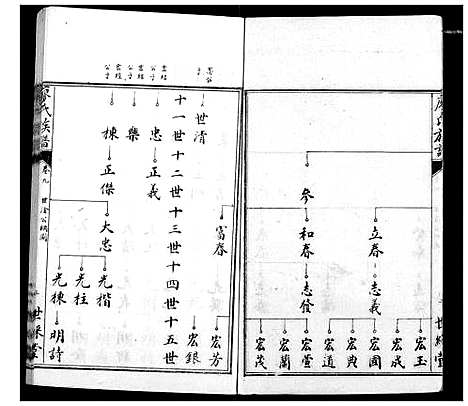 廖氏族譜
世綵堂
立春
志義
參
和春
志發
宏玉
宏成
宏圃
宏典
宏道
宏萱
宏蘭
宏茂
世清
富春
宏芳
宏銀
十一世十二世十三世十四世十五世
忠
正義
樂
棟
正傑
大忠
光楷
光柱
光棟
明詩
廖氏族譜
卷九
世綵堂